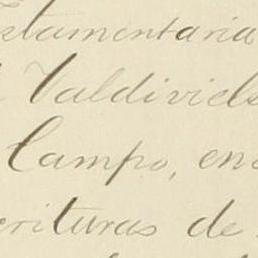 stamentaria
Valdiviels
Campo, en
crituras de